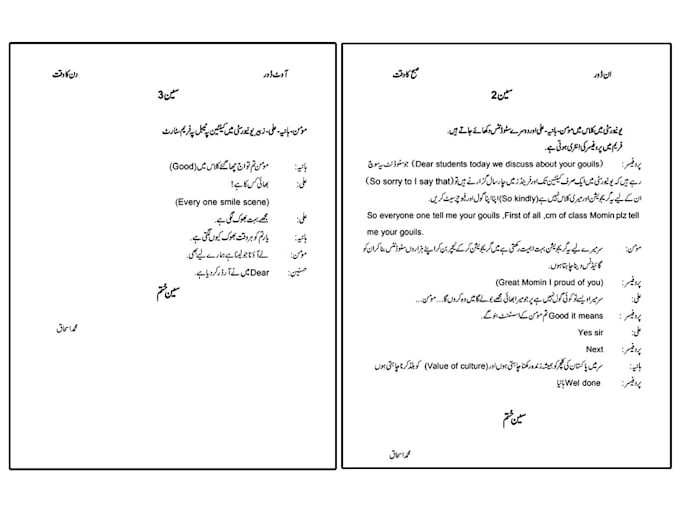 ان ڈور
صبح کا وقت
سین 2
یونیورسٹی میں کلاس میں مؤمن، ہانیہ، علی اور دوسرے سٹوڈنٹس دکھائے جاتے ہیں۔
فریم میں پروفیسر کی انٹری ہوتی ہے۔
پروفیسر: (Dear students today we discuss about your gouils) جو سٹوڈنٹ یہ سوچ
رہے ہیں کہ یونیورسٹی میں ایک صرف کینٹین تک اور فرینڈز میں چار سال گزارنے ہیں تو (So sorry to I say that)
ان کے لیے یہ گریجویشن اور میری کلاس نہیں ہے (So kindly) اپنا اپنا گول اور فیوچر سیٹ کریں۔
So everyone one tell me your gouils ,First of all ,cm of class Momin plz tell
me your gouils.
مؤمن: سر میرے لیے یہ گریجویشن بہت اہمیت رکھتی ہے میں گریجویشن کر کے ٹیچر بن کر اپنے ہزاروں سٹوڈنٹس بنا کر ان کو
گائیڈنس دینا چاہتا ہوں۔
پروفیسر: (Great Momin I proud of you)
علی: سر میرا ویسے تو کوئی گول نہیں ہے پر جو میرا بھائی مجھے بولے گا میں وہ کروں گا۔۔۔ مؤمن۔۔۔
پروفیسر: Good it means تم مؤمن کے اسسٹنٹ بنو گے۔
علی: Yes sir
پروفیسر: Next
ہانیہ: سر میں پاکستان کی کلچر کو ہمیشہ زندہ رکھنا چاہتی ہوں اور (Value of culture) کو بلڈ کرنا چاہتی ہوں
پروفیسر: Wel done ہانیا
سین ختم
محمد اسحاق
آوٹ ڈور
دن کا وقت
سین 3
مؤمن۔ ہانیہ۔ علی۔ زبیر یونیورسٹی میں کینٹین پہ ٹیبل پہ فریم سٹارٹ
ہانیہ: مؤمن تم تو آج چھا گئے کلاس میں (Good)
علی: بھائی کس کا ہے!
(Every one smile scene)
علی: مجھے بہت بھوک لگی ہے۔
ہانیہ: یار تم کو ہر وقت بھوک کیوں لگتی ہے۔
مؤمن: لے آؤ نا جو لینا ہے ہمارے لیے بھی۔
حسنین: Dear میں نے آرڈر کر دیا ہے۔
سین ختم
محمد اسحاق